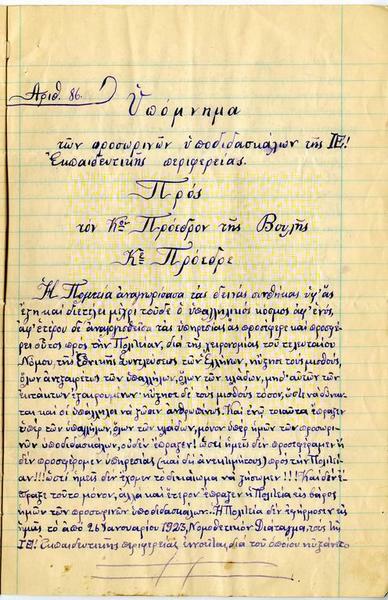 Ἀριθ. 86.
Ὑπόμνημα
τῶν προσωρινῶν ὑποδιδασκάλων τῆς ΙΕ!
Ἐκπαιδευτικῆς περιφερείας.
Πρός
τὸν Κον Πρόεδρον τῆς Βουλῆς
Κε Πρόεδρε
Ἡ Πολιτεία ἀναγνωρίσασα τὰς δεινὰς συνθήκας ὑφ' ἃς
ἔζη καὶ διετέλει μέχρι τοῦδε ὁ ὑπαλληλικὸς κόσμος ἀφ' ἑνός,
ἀφ' ἑτέρου δὲ ἀναγνωρίσασα τὰς ὑπηρεσίας ἃς προσέφερε καὶ προσφέ-
ρει οὗτος πρὸς τὴν Πολιτείαν, διὰ τῆς χειρονομίας τοῦ τελευταίου
Νόμου, τῆς Ἐθνικῆς Συνελεύσεως τῶν Ἑλλήνων, ηὔξησε τοὺς μισθούς,
ὅλων ἀνεξαιρέτως τῶν ὑπαλλήλων, ὅλων τῶν κλάδων, μηδ' αὐτῶν τῶν
ἐκτάκτων ἐξαιρουμένων· ηὔξησε δὲ τοὺς μισθοὺς τόσον, ὥστε νὰ δύναν-
ται καὶ οἱ ὑπάλληλοι νὰ ζῶσιν ἀνθρωπίνως. Καὶ ἐνῷ τοιαῦτα ἔπραξεν
ὑπὲρ τῶν ὑπαλλήλων, ὅλων τῶν κλάδων, μόνον ὑπὲρ ἡμῶν τῶν προσωρι-
νῶν ὑποδιδασκάλων, οὐδὲν ἔπραξεν! ὡστὶ ἡμεῖς δὲν προσεφέραμεν ἢ
δὲν προσφέρομεν ὑπηρεσίας (καὶ δὴ ἀνεκτιμήτους) πρὸς τὴν Πολιτεί-
αν!!! ὡστὶ ἡμεῖς δὲν ἔχομεν τὸ δικαίωμα νὰ ζήσωμεν!!! Καὶ δὲν ἔ-
πραξε τοῦτο μόνον, ἀλλὰ καὶ ἕτερον ἔπραξεν ἡ Πολιτεία εἰς βάρος
ἡμῶν τῶν προσωρινῶν ὑποδιδασκάλων. Ἡ Πολιτεία δὲν ἐφήρμοσεν εἰς
ἡμᾶς τὸ ἀπὸ 26 Ἰανουαρίου 1923, Νομοθετικὸν Διάταγμα, τοὺς τῆς
ΙΕ! Ἐκπαιδευτικῆς περιφερείας ἐννοεῖται, διὰ τοῦ ὁποίου ηὐξάνετο